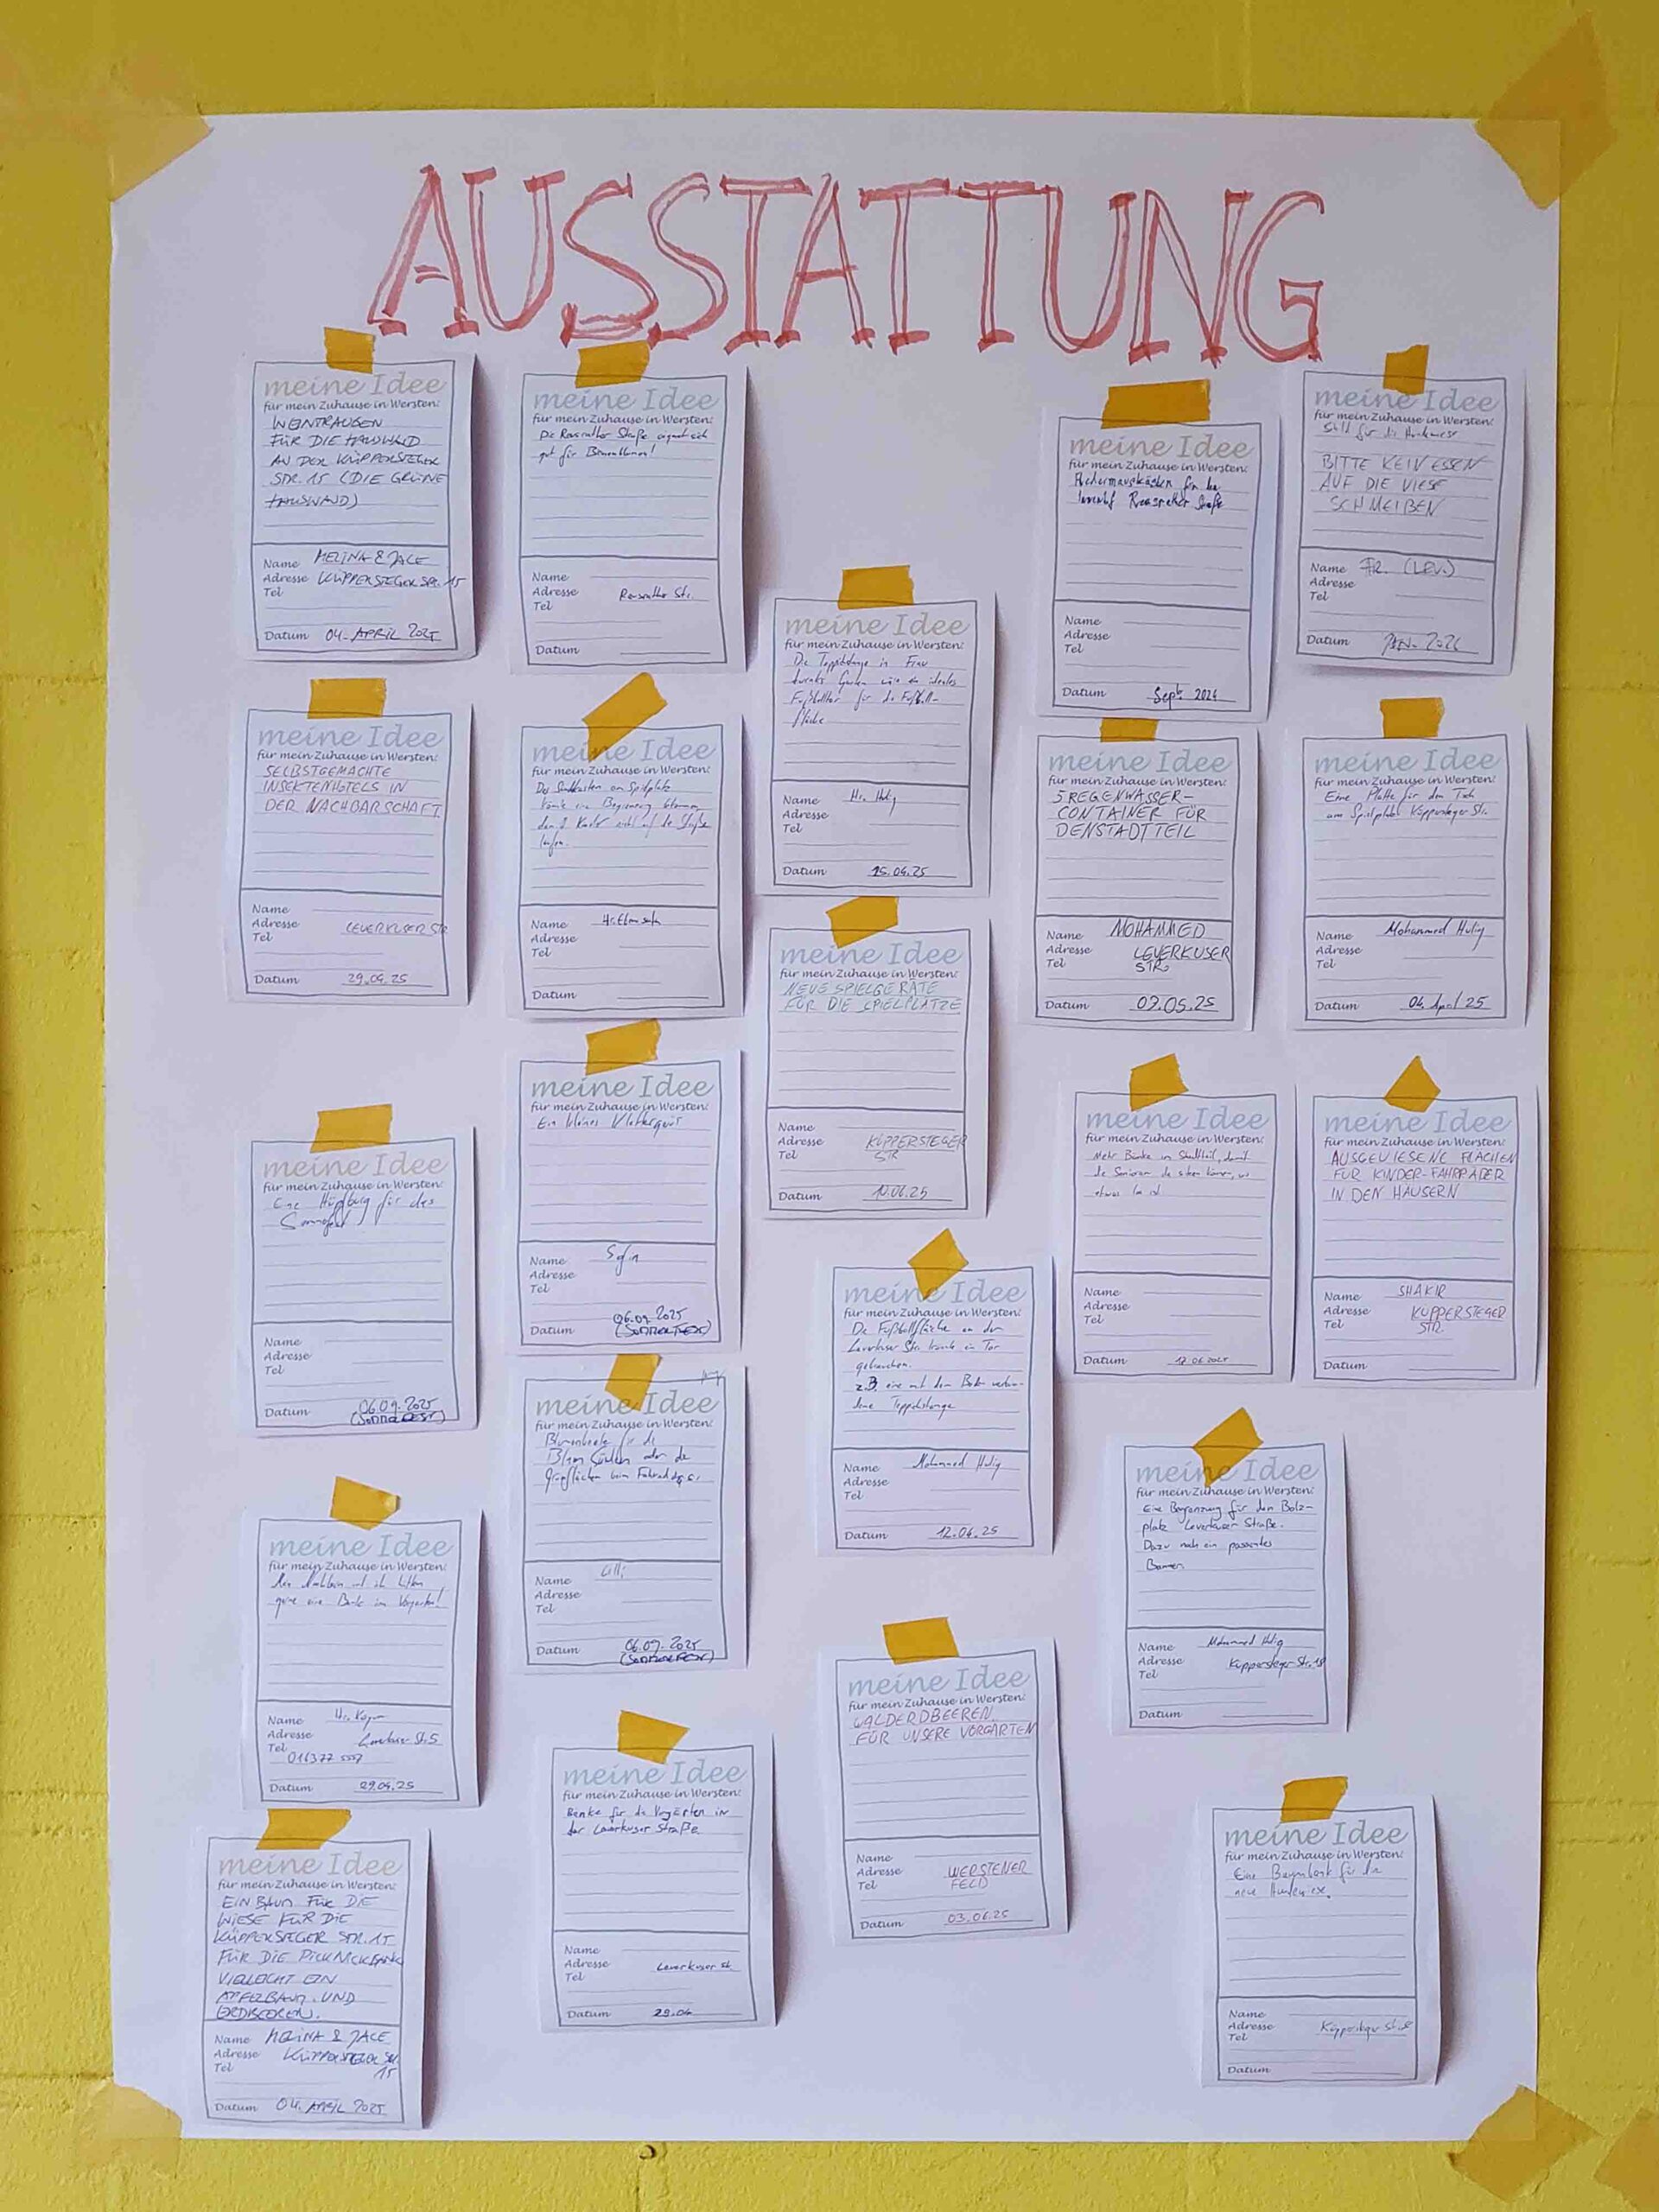 AUSSTATTUNG
meine Idee
für mein Zuhause in Wersten:
WEINTRAUBEN
FÜR DIE HAUSWAND
AN DER KÜPPERSTEGER
STR. 15 (DIE GRÜNE
HAUSWAND)
Name MELINA & JACE
Adresse KÜPPERSTEGER STR. 15
Tel
Datum 04. APRIL 2025
meine Idee
für mein Zuhause in Wersten:
Die Straße eignet sich
gut für
Name
Adresse
Tel
Datum
meine Idee
für mein Zuhause in Wersten:
Fledermauskästen für
Straße
Name
Adresse
Tel
Datum Sept. 2024
meine Idee
für mein Zuhause in Wersten:
für die
BITTE KEIN ESSEN
AUF DIE WIESE
SCHMEIßEN
Name FR. (LEV.)
Adresse
Tel
Datum JAN.
meine Idee
für mein Zuhause in Wersten:
Die Teppichstange in Frau
Garten wäre ein ideales
Fußballtor für die Fußball-
fläche
Name Hr. Hulig
Adresse
Tel
Datum 15.04.25
meine Idee
für mein Zuhause in Wersten:
SELBSTGEMACHTE
INSEKTENHOTELS IN
DER NACHBARSCHAFT
Name
Adresse LEVERKUSER STR
Tel
Datum 29.04.25
meine Idee
für mein Zuhause in Wersten:
Der Sandkasten am Spielplatz
könnte eine Begrenzung bekommen,
Kinder nicht auf die Straße
laufen.
Name Hr.
Adresse
Tel
Datum
meine Idee
für mein Zuhause in Wersten:
5 REGENWASSER-
CONTAINER FÜR
DEN STADTTEIL
Name MOHAMMED
Adresse LEVERKUSER
Tel STR.
Datum 09.05.25
meine Idee
für mein Zuhause in Wersten:
Eine Platte für den Tisch
am Spielplatz Küppersteger Str.
Name Mohammed Hulig
Adresse
Tel
Datum 04. April 25
meine Idee
für mein Zuhause in Wersten:
NEUE SPIELGERÄTE
FÜR DIE SPIELPLÄTZE
Name
Adresse KÜPPERSTEGER
Tel STR
Datum 10.06.25
meine Idee
für mein Zuhause in Wersten:
Ein kleines Klettergerüst
Name
Adresse
Tel
Datum 06.09.2025
(SOMMERFEST)
meine Idee
für mein Zuhause in Wersten:
Mehr Bänke im Stadtteil, damit
die Senioren da sitzen können, wo
etwas los ist
Name
Adresse
Tel
Datum 17.06.2025
meine Idee
für mein Zuhause in Wersten:
AUSGEWIESENE FLÄCHEN
FÜR KINDER-FAHRRÄDER
IN DEN HÄUSERN
Name SHAKIR
Adresse KÜPPERSTEGER
Tel STR.
Datum
meine Idee
für mein Zuhause in Wersten:
Eine Hüpfburg für das
Sommerfest
Name
Adresse
Tel
Datum 06.09.2025
(SOMMERFEST)
meine Idee
für mein Zuhause in Wersten:
Die Fußballfläche an der
Leverkuser Str. könnte ein Tor
gebrauchen.
z.B. eine mit dem Boden verbun-
dene Teppichstange
Name Mohammed Hulig
Adresse
Tel
Datum 12.04.25
meine Idee
für mein Zuhause in Wersten:
Blumenbeete für die
oder die
Grünflächen beim
Name Lilli
Adresse
Tel
Datum 06.09.2025
(SOMMERFEST)
meine Idee
für mein Zuhause in Wersten:
Eine Begrenzung für den Bolz-
platz Leverkuser Straße.
Dazu noch ein passendes
Banner
Name Mohammed Hulig
Adresse Küppersteger Str. 18
Tel
Datum
meine Idee
für mein Zuhause in Wersten:
Nachbarn und ich hätten
gerne eine Bank im Vorgarten!
Name Hr.
Adresse Leverkuser St. 5
Tel
Datum 29.04.25
meine Idee
für mein Zuhause in Wersten:
WALDERDBEEREN
FÜR UNSERE VORGÄRTEN
Name
Adresse WERSTENER
Tel FELD
Datum 03.06.25
meine Idee
für mein Zuhause in Wersten:
Bänke für die Vorgärten in
der Leverkuser Straße
Name
Adresse Leverkuser St.
Tel
Datum 29.04
meine Idee
für mein Zuhause in Wersten:
Eine Baumbank für die
neue Hundewiese.
Name
Adresse
Tel
Datum
meine Idee
für mein Zuhause in Wersten:
EIN BAUM FÜR DIE
WIESE FÜR DIE
KÜPPERSTEGER STR. 15
FÜR DIE PICKNICKBANK
VIELLEICHT EIN
APFELBAUM. UND
ERDBEEREN.
Name MELINA & JACE
Adresse KÜPPERSTEGER STR.
Tel 15
Datum 04. APRIL 2025